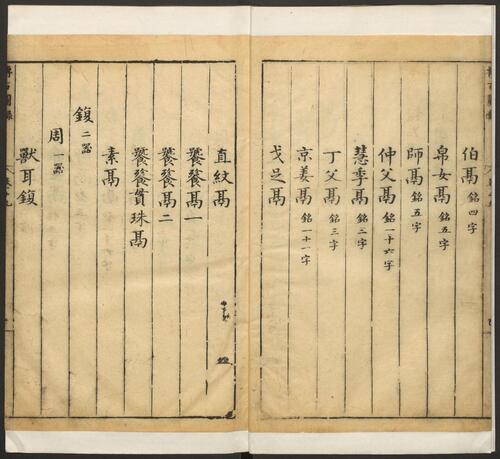 伯鬲 銘四字
帛女鬲 銘五字
師鬲 銘五字
仲父鬲 銘一十六字
慧季鬲 銘三字
丁父鬲 銘三字
京姜鬲 銘一十一字
戈足鬲
直紋鬲
饕餮鬲一
饕餮鬲二
饕餮貫珠鬲
素鬲
鍑二器
周一器
獸耳鍑